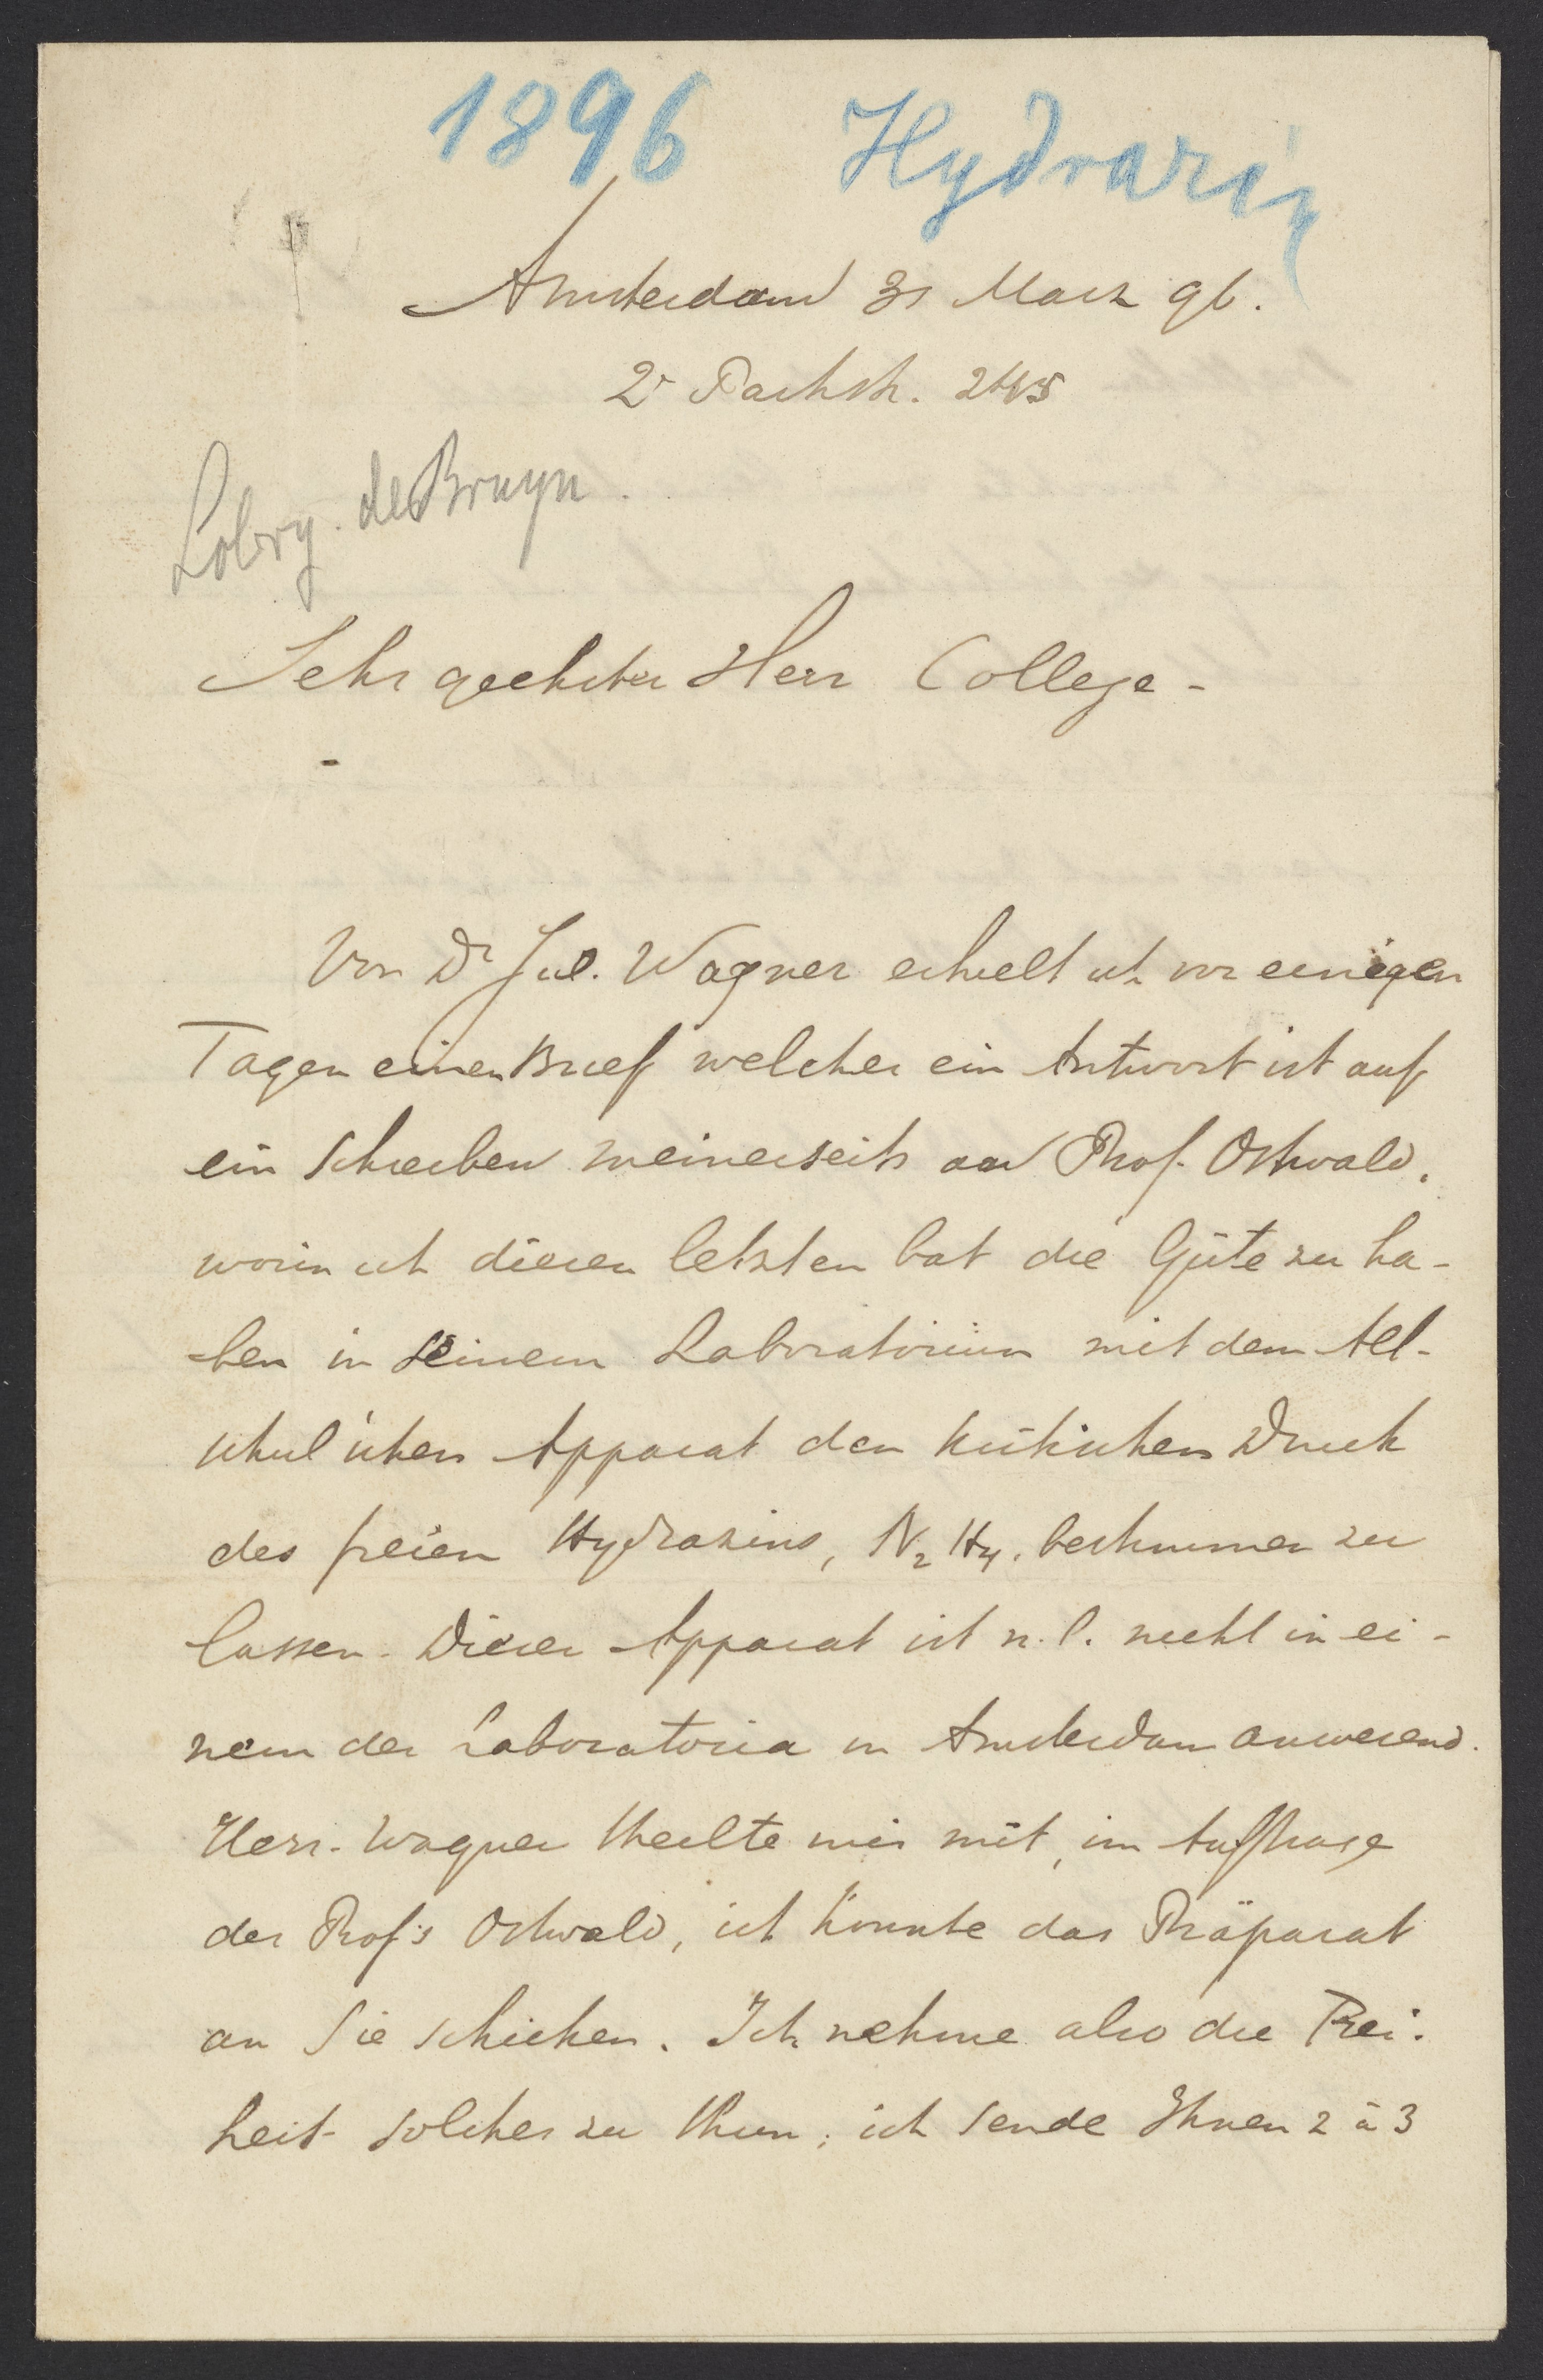 1896 Hydrazin
Amsterdam 31 März 96.
2e Parkstr. 245
Lobry. de Bruyn.
Sehr geehrter Herr College -
Von Dr Jul. Wagner erhielt ich vor einigen
Tagen einen Brief welcher ein Antwort ist auf
ein Schreiben meinerseits an Prof. Ostwald,
worin ich diesen letzten bat die Güte zu ha-
ben in seinem Laboratorium mit dem Alt-
schul'schen Apparat den kritischen Druck
des freien Hydrazins, N2H4, bestimmen zu
lassen. Dieser Apparat ist n.l. nicht in ei-
nem der Laboratoria in Amsterdam anwesend.
Herr. Wagner theilte mir mit, im Auftrage
des Prof's Ostwald, ich könnte das Präparat
an Sie schicken. Ich nehme also die Frei-
heit solches zu thun; ich sende Ihnen 2 à 3